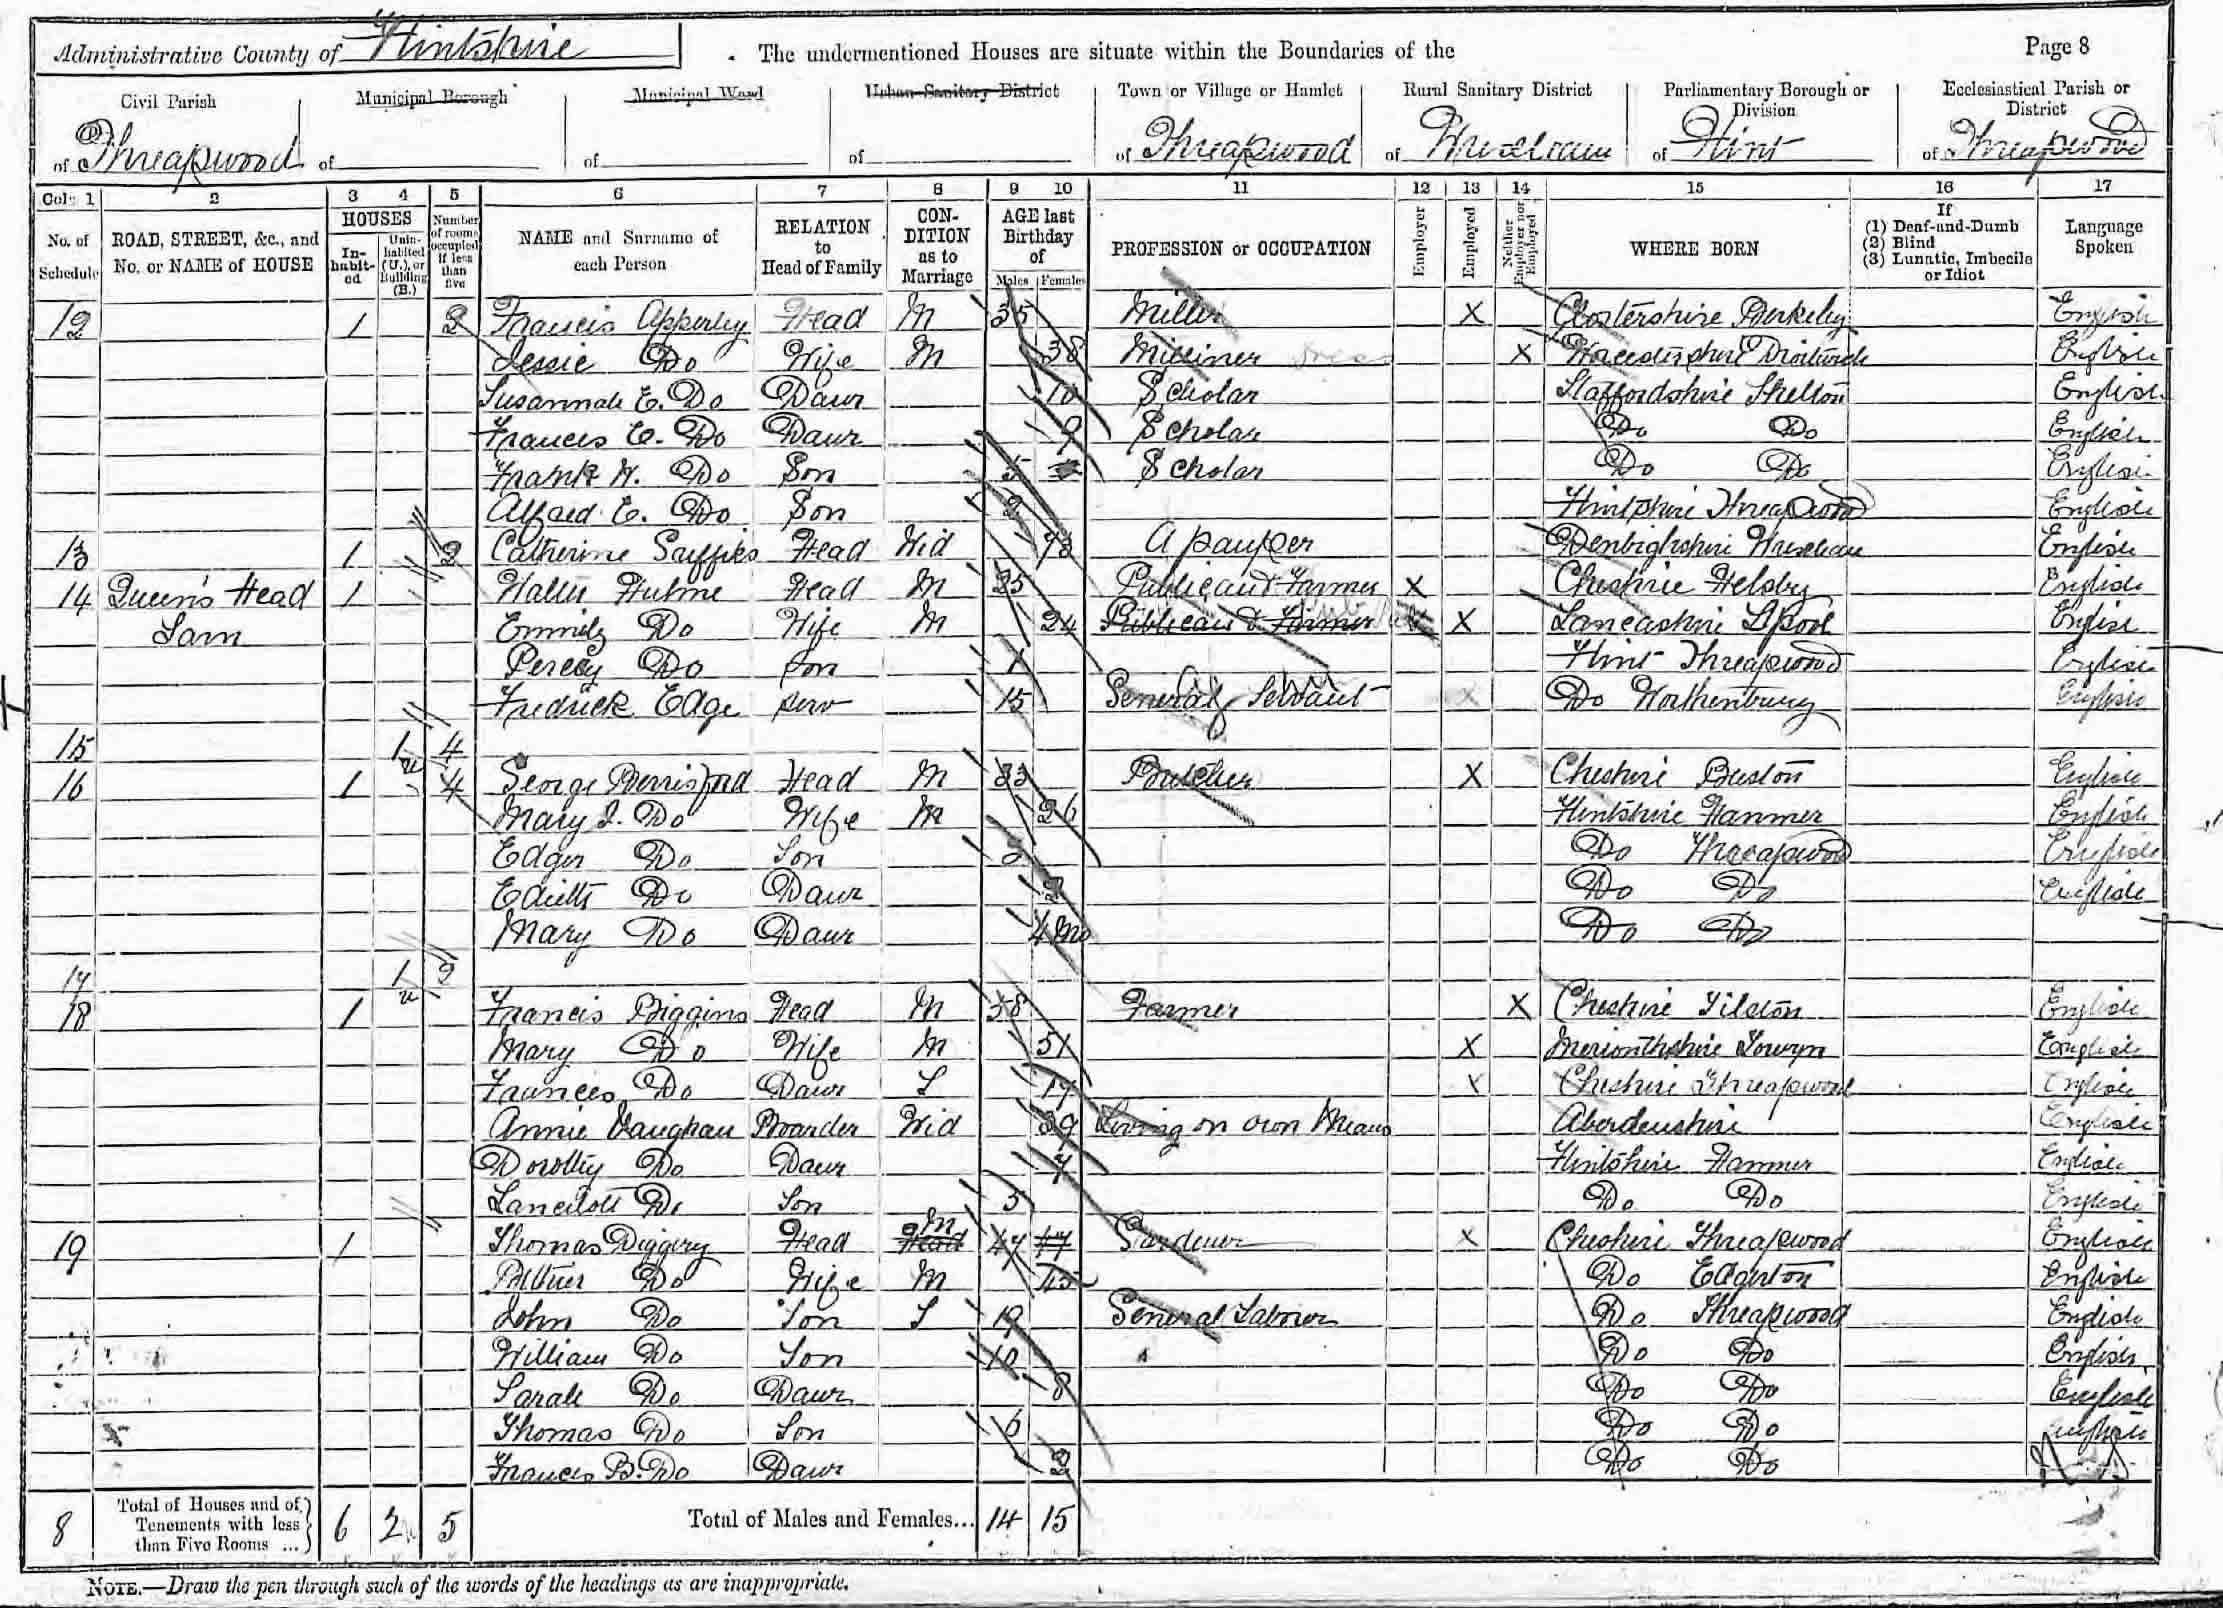 Administrative County of Flintshire . The undermentioned Houses are situate within the Boundaries of the Page 8
Civil Parish Municipal Borough Municipal Ward Urban Sanitary District Town or Village or Hamlet Rural Sanitary District Parliamentary Borough or Division Ecclesiastical Parish or District
of Threapwood of of of of Threapwood of Wrexham of Flint of Threapwood
Cols 1 2 3 4 5 6 7 8 9 10 11 12 13 14 15 16 17
No. of Schedule ROAD, STREET, &c., and No. or NAME of HOUSE HOUSES In-habit-ed Unin-habited (U.), or Building (B.) Number of rooms occupied if less than five NAME and Surname of each Person RELATION to Head of Family CON-DITION as to Marriage AGE last Birthday of Males Females PROFESSION or OCCUPATION Employer Employed Neither Employer nor Employed WHERE BORN If (1) Deaf-and-Dumb (2) Blind (3) Lunatic, Imbecile or Idiot Language Spoken
12 1 2 Francis Apperley Head M 35 Miller X Glostershire Berkeley English
Jessie Do Wife M 38 Milliner X Worcestershire Droitwich English
Susannah E. Do Daur 10 Scholar Staffordshire Shelton English
Frances E. Do Daur 9 Scholar Do Do English
Frank H. Do Son 5 Scholar Do Do English
Alfred E. Do Son 2 Flintshire Threapwood English
13 1 2 Catherine Head Wid 73 A pauper Denbighshire Wrexham English
14 Queen's Head 1 Walter Hulme Head M 25 Publican & Farmer X Cheshire Helsby English
Sarn Emmily Do Wife M 24 Publican & Farmer X Lancashire Lpool English
Percey Do Son 1 Flint Threapwood English
Fredrick Edge Serv 15 General Servant X Do Worthenbury English
15 1 u 4
16 1 4 George Berrisford Head M 33 Butcher X Cheshire English
Mary J. Do Wife M 26 Flintshire Hanmer English
Edger Do Son Do Threapwood English
Edieth Do Daur 2 Do Do English
Mary Do Daur 4 Mo Do Do
17 1 u 2
18 1 Francis Biggins Head M 58 Farmer X Cheshire Tilston English
Mary Do Wife M 51 X Merionthshire Towyn English
Frances Do Daur S 17 X Cheshire Threapwood English
Annie Vaughan Boarder Wid 39 Living on own Means Aberdenshire English
Dorothy Do Daur 7 Flintshire Hanmer English
Lancelott Do Son 5 Do Do English
19 1 Thomas Diggery Head Head M 47 47 Gardener X Cheshire Threapwood English
Do Wife M 45 Do Edgerton English
John Do Son S 19 General Labourer Do Threapwood English
William Do Son 10 Do Do English
Sarah Do Daur 8 Do Do English
Thomas Do Son 6 Do Do English
Frances B. Do Daur 2 Do Do
8 Total of Houses and of Tenements with less than Five Rooms ... 6 2 5 Total of Males and Females... 14 15
NOTE.—Draw the pen through such of the words of the headings as are inappropriate.